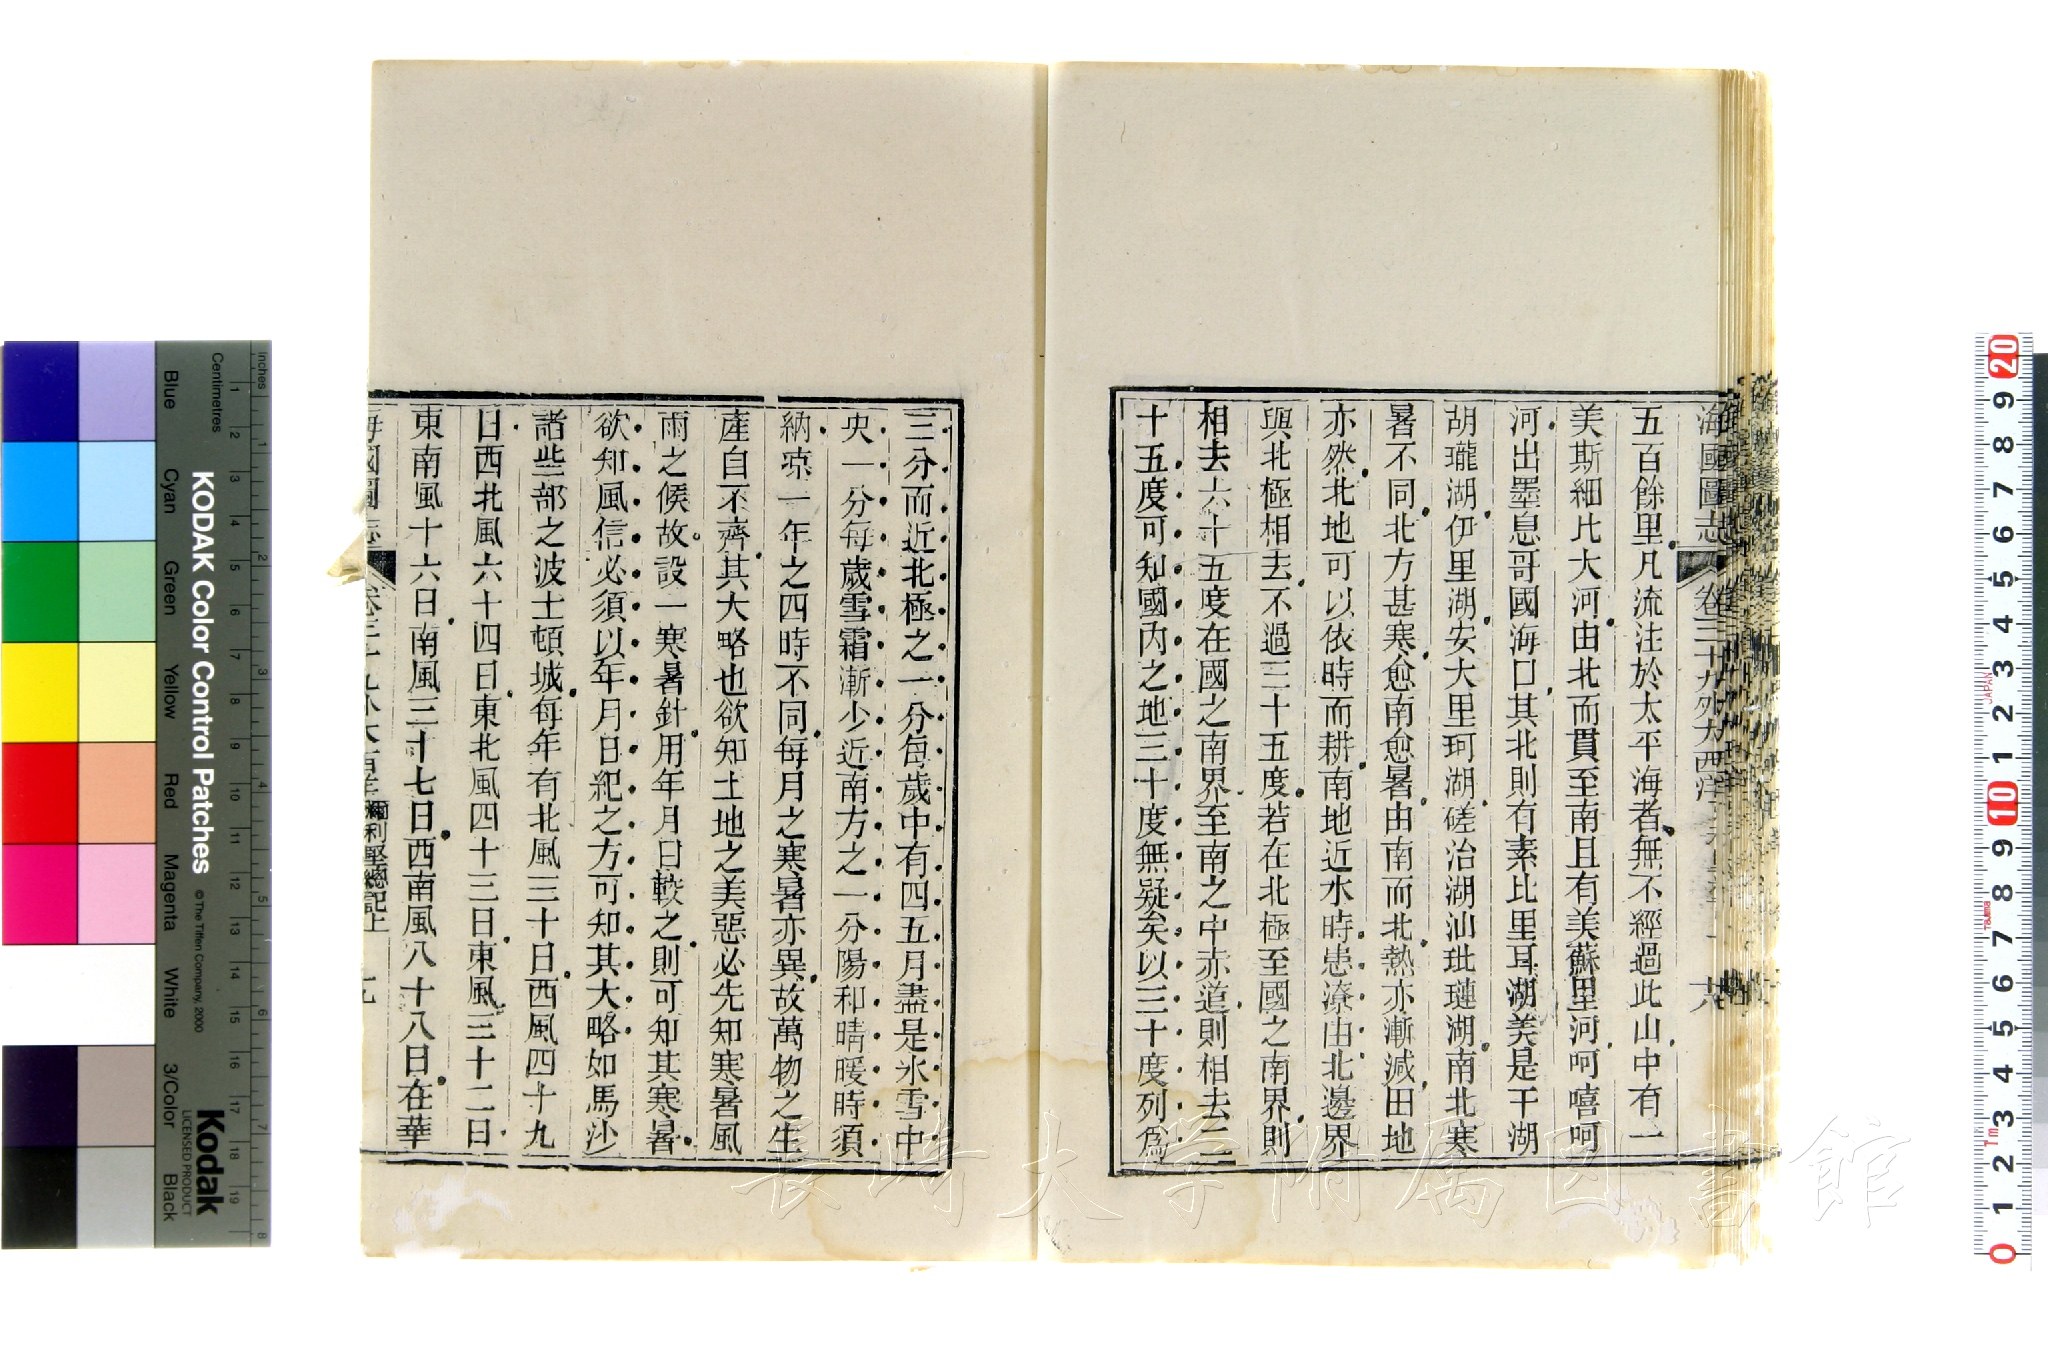 海國圖志 卷三十九 外大西洋 六
五百餘里凡流注於太平海者無不經過此山中有一
美斯細比大河由北而貫至南且有美蘇里河呵嘻呵
河出墨息哥國海口其北則有素比里耳湖美是干湖
胡瓏湖伊里湖安大里珂湖磋治湖汕玭璉湖南北寒
暑不同北方甚寒愈南愈暑由南而北熱亦漸減田地
亦然北地可以依時而耕南地近水時患潦由北邊界
與北極相去不過三十五度若在北極至國之南界則
相去六十五度在國之南界至南之中赤道則相去二
十五度可知國內之地三十度無疑矣以三十度列爲
三分而近北極之一分每歲中有四五月盡是氷雪中
央一分每歲雪霜漸少近南方之一分陽和晴暖時須
納凉一年之四時不同每月之寒暑亦異故萬物之生
產自不齊其大略也欲知土地之美惡必先知寒暑風
雨之候故設一寒暑針用年月日較之則可知其寒暑
欲知風信必須以年月日紀之方可知其大略如馬沙
諸些部之波士頓城每年有北風三十日西風四十九
日西北風六十四日東北風四十三日東風三十二日
東南風十六日南風三十七日西南風八十八日在華
海國圖志 卷三十九 外大西洋 彌利堅總記上 七
KODAK Color Control Patches
© The Tiffen Company, 2000
Kodak
LICENSED PRODUCT
Centimetres
Inches
Blue
Cyan
Green
Yellow
Red
Magenta
White
3/Color
Black
1 2 3 4 5 6 7 8 9 10 11 12 13 14 15 16 17 18 19
1 2 3 4 5 6 7 8
20 9 8 7 6 5 4 3 2 1 10 9 8 7 6 5 4 3 2 1 0
JAPAN
長崎大学附属図書館